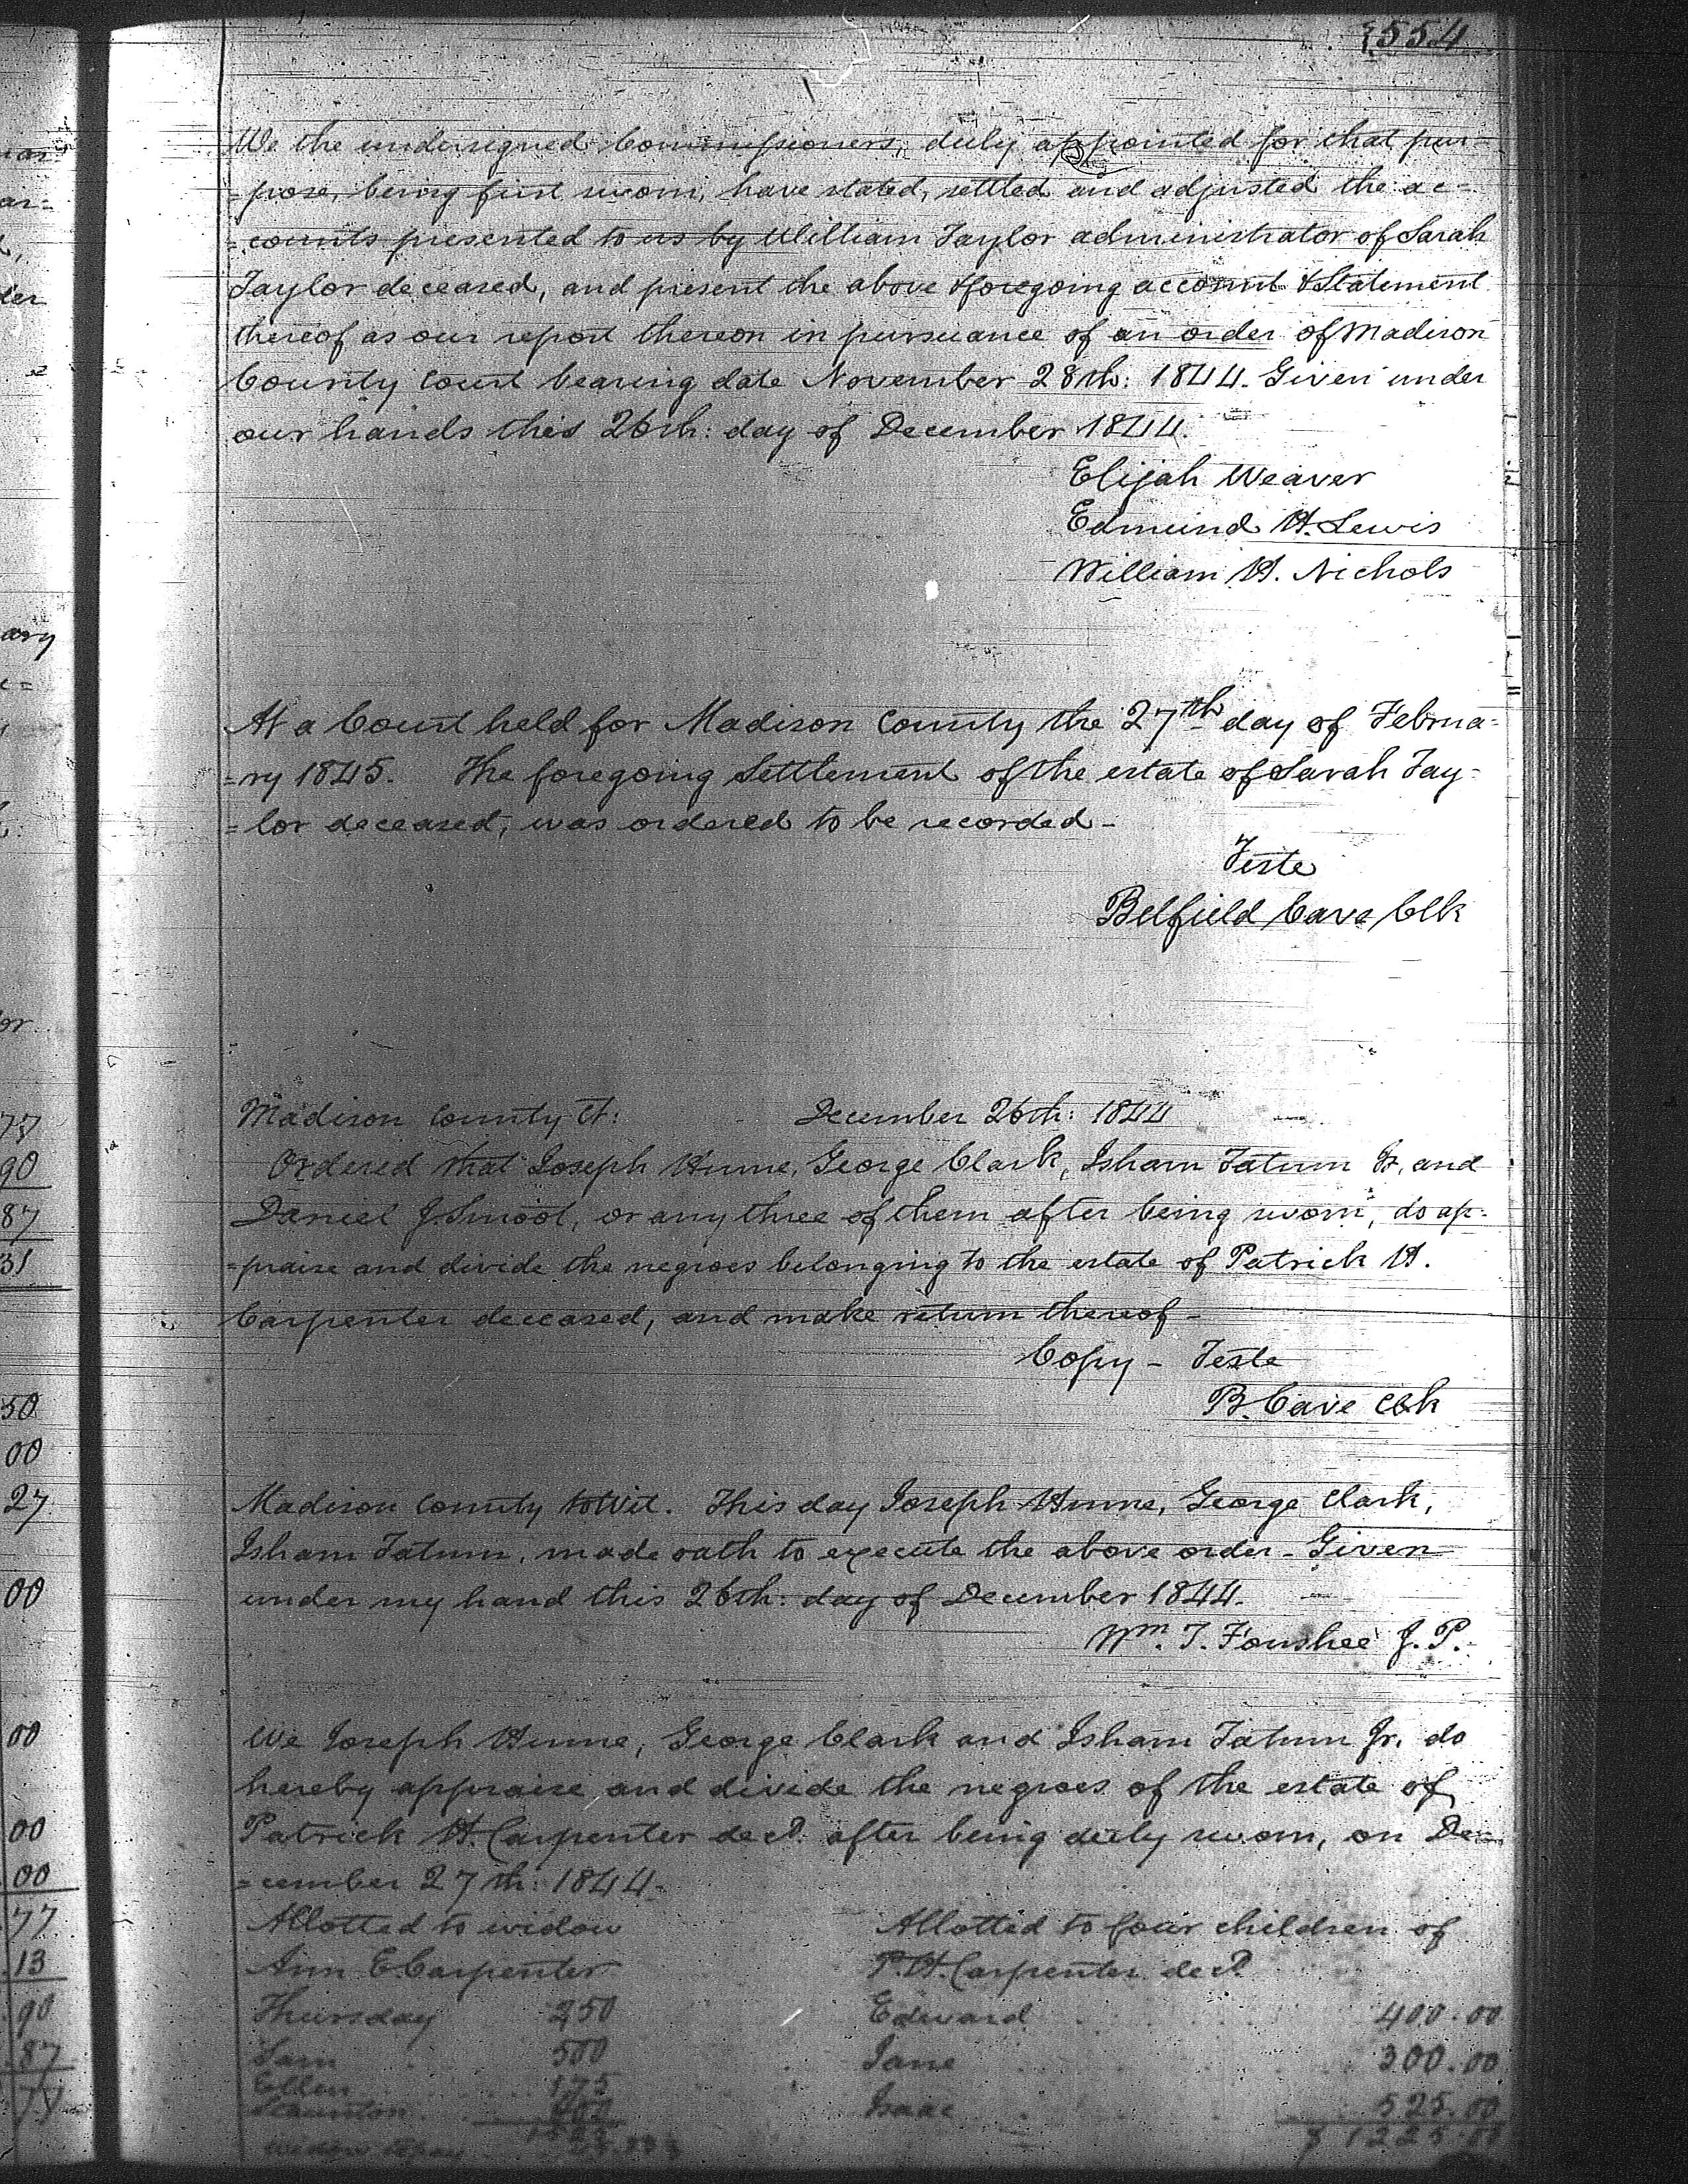 554
We the undersigned Commissioners, duly appointed for that pur=
=pose, being first sworn, have stated, settled and adjusted the ac=
=counts presented to us by William Taylor administrator of Sarah
Taylor deceased, and present the above & foregoing account & Statement
thereof as our report thereon in pursuance of an order of Madison
County Court bearing date November 28th: 1844. Given under
our hands this 26th: day of December 1844.
Elijah Weaver
Edmund H. Lewis
William H. Nichols
At a Court held for Madison County the 27th day of Februa=
=ry 1845. The foregoing Settlement of the estate of Sarah Tay=
=lor deceased, was ordered to be recorded -
Teste
Belfield Cave Clk
Madison County Ct: December 26th: 1844
Ordered that Joseph Hume, George Clark, Isham Tatum Jr, and
Daniel J. Smoot, or any three of them after being sworn, do ap=
=praise and divide the negroes belonging to the estate of Patrick H.
Carpenter deceased, and make return thereof -
Copy - Teste
B. Cave Clk
Madison County to Wit. This day Joseph Hume, George Clark,
Isham Tatum, made oath to execute the above order - Given
under my hand this 26th: day of December 1844.
Wm. T. Foushee J. P.
We Joseph Hume, George Clark and Isham Tatum Jr. do
hereby appraise and divide the negroes of the estate of
Patrick H. Carpenter decd. after being duly sworn, on De=
=cember 27th: 1844.
Allotted to widow Allotted to four children of
Ann E. Carpenter P. H. Carpenter decd.
Thursday 250 Edward 400.00
Sam 500 Jane 300.00
Ellen 175 Isaac 525.00
Staunton
widow to pay